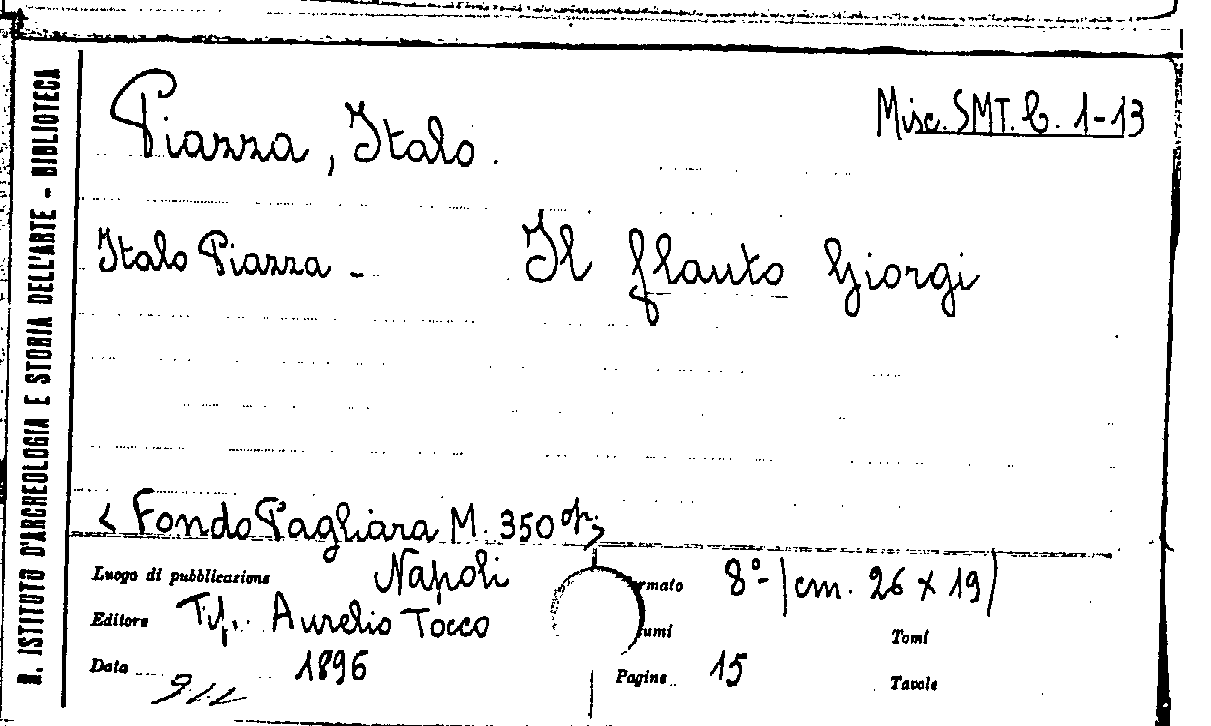 R. ISTITUTO D'ARCHEOLOGIA E STORIA DELL'ARTE - BIBLIOTECA
Piazza, Italo.
Misc. SMT. B. 1-13
Italo Piazza - Il flauto Giorgi
< Fondo Pagliara M. 350 >
Luogo di pubblicazione Napoli
Formato 8°- (cm. 26 x 19)
Editore Tip. Aurelio Tocco
umi
Tomi
Data 1896
Pagine 15
Tavole